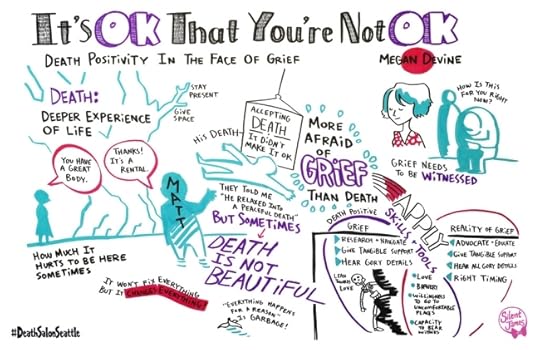 It's OK That You're Not OK
Death Positivity In The Face Of Grief
Megan Devine
Death:
Deeper Experience
Of Life
Stay
Present
Give
Space
You have
a great
body.
Thanks!
It's a
rental.
Matt
How much it
hurts to be here
sometimes
It won't fix everything
but it changes everything!
His Death
Accepting
Death
It didn't
make it ok
They told me
"He relaxed into
a peaceful death"
But sometimes
Death
is not
beautiful
"Everything happens
for a reason"
is garbage!
More
afraid
of
Grief
than death
How is this
for you right
now?
Grief needs
to be witnessed
Apply
Skills + Tools
Death Positive
Grief
Research + Navigate
Give tangible support
Hear gory details
Lean
toward
love
Love
Bravery
Willingness
to go to
uncomfortable
places
Capacity
to bear
witness
Reality of Grief
Advocate + Educate
Give tangible support
Hear all gory details
Right timing
Silent
James
#DeathSalonSeattle